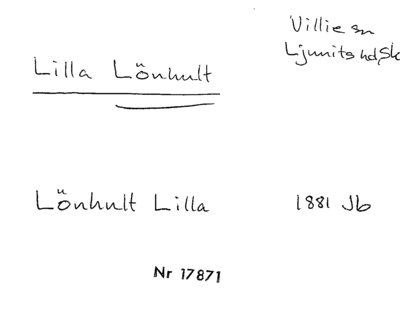 Villie sn
Ljunits hd, Sk
Lilla Lönhult
Lönhult Lilla 1881 Jb
Nr 17871